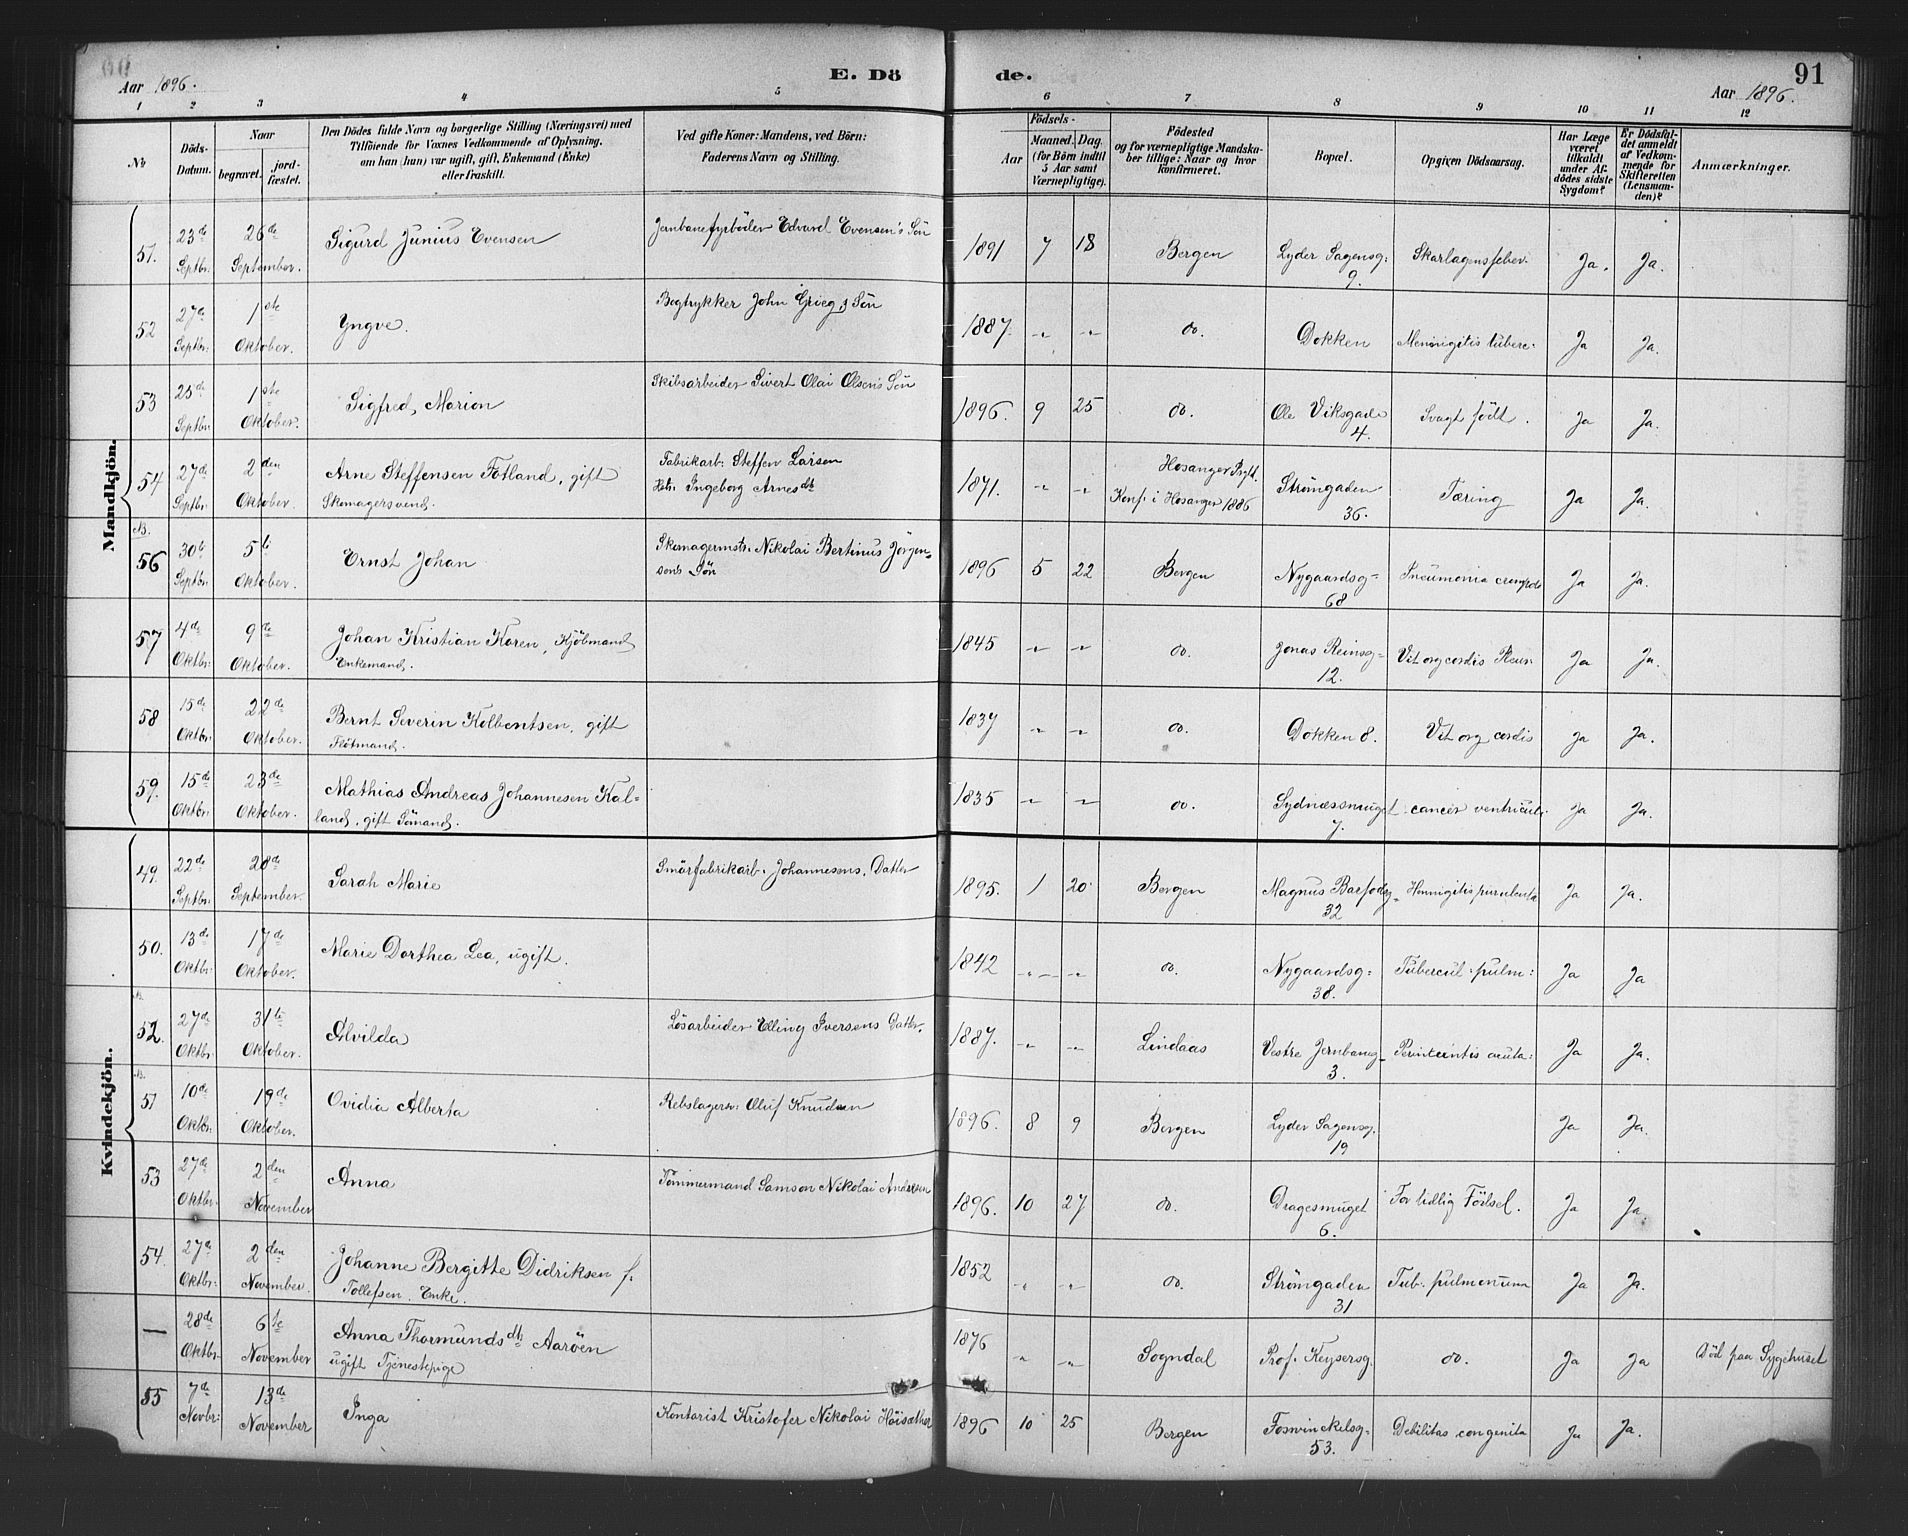 Aar 1896.
E. Dö
de.
91
Aar 1896.
1 2 3 4 5 6 7 8 9 10 11 12
No
Döds-Datum.
Naar
begravet.
jord-fæstet.
Den Dödes fulde Navn og borgerlige Stilling (Næringsvei) med
Tilföiende for Voxnes Vedkommende af Oplysning,
om han (hun) var ugift, gift, Enkemand (Enke)
eller fraskilt.
Ved gifte Koner: Mandens, ved Börn:
Faderens Navn og Stilling.
Födsels-
Aar
Maaned. Dag.
(for Börn indtil
5 Aar samt
Værnepligtige).
Födested
og for værnepligtige Mandska-
ber tillige: Naar og hvor
konfirmeret.
Bopæl.
Opgiven Dödsaarsag.
Har Læge
været
tilkaldt
under Af-
dödes sidste
Sygdom?
Er Dödsfal-
det anmeldt
af Vedkom-
mende for
Skifteretten
(Lensman-
den)?
Anmærkninger.
Mandkjön.
51. 23de Septbr. 26de September. Sigurd Junius Evensen Jernbanefyrböder Edvard Evensen's Sön 1891 7 18 Bergen Lyder Sagensg: 9. Skarlagensfeber. Ja. Ja.
52 27de Septbr. 1ste Oktober. Yngve. Bogtrykker John Grieg's Sön 1887. " " do. Dokken Meningitis tuberc: Ja Ja.
53 25de Septbr 1ste Oktober. Sigfred, Marion Skibsarbeider Sivert Olai Olsen's Sön 1896. 9 25 do. Ole Viksgade 4. Svagt födt. Ja Ja.
54 27de Septbr. 2den Oktober. Arne Steffensen Fotland, gift Skomagersvend. Fabrikarb: Steffen Larsen Hstr: Ingeborg Arnesdtr 1871. " " Hosanger Prgt. Konf. i Hosanger 1886 Strömgaden 36. Tæring Ja Ja.
56 30te Septbr. 5te Oktober. Ernst Johan Skomagermstr. Nikolai Bertinus Jörgensens Sön 1896 5 22 Bergen Nygaardsg= 68 Pneumonia crouposa Ja Ja.
57 4de Oktbr: 9de Oktober. Johan Kristian Koren, Kjöbmand Enkemand. 1845 " " do. Jonas Reinsg= 12. Vit org cordis Ja Ja.
58 15de Oktbr. 22de Oktober. Bernt Severin Kolbentsen, gift Flötmand. 1837 " " do. Dokken 8. Vit org cordis Ja Ja.
59. 15de Oktbr. 23de Oktober. Mathias Andreas Johannesen Kalland, gift Sömand. 1835 " " do. Sydnæssmuget 7. cancer ventriculi. Ja Ja.
Kvindekjön.
49. 22de Septbr. 28de September. Sarah Marie Smörfabrikarb. Johannesens, Datter 1895. 1 20 Bergen Magnus Barfodsg= 32 purulenta Ja Ja.
50. 13de Oktbr. 17de Oktober. Marie Dorthea Lea, ugift. 1842 " " do. Nygaardsg= 38. Tubercul: pulm: Ja Ja
52. 27de Oktbr. 31te Oktober. Alvilda Lösarbeider Elling Iversens Datter. 1887. " " Lindaas Vestre Jernbaneg- 3. acuta: Ja Ja.
51 10de Oktbr. 19de Oktober. Ovidia Alberta Rebslagersv: Oluf Knudsen 1896. 8 9 Bergen Lyder Sagensg. 19 Ja Ja.
53 27de Oktbr. 2den November Anna Tömmermand Samson Nikolai Andersen 1896. 10 27 do. Dragesmuget 6. For tidlig Födsel. Ja Ja.
54. 27de Oktbr: 2den November. Johanne Bergitte Didriksen f. Tollefsen. Enke. 1852 " " do. Strömgaden 31 Tub. pulmonum Ja Ja.
— 28de Oktbr. 6te November Anna Thormundsdtr Aaröen ugift Tjenestepige 1876 " " Sogndal Prof. Keysersg. do. Ja Ja Död paa Sygehuset
55 7de Novbr: 13de November Inga Kontorist Kristofer Nikolai Höisæther 1896 10 25 Bergen Fosswinckelsg= 53. Debilitas congenita Ja Ja.